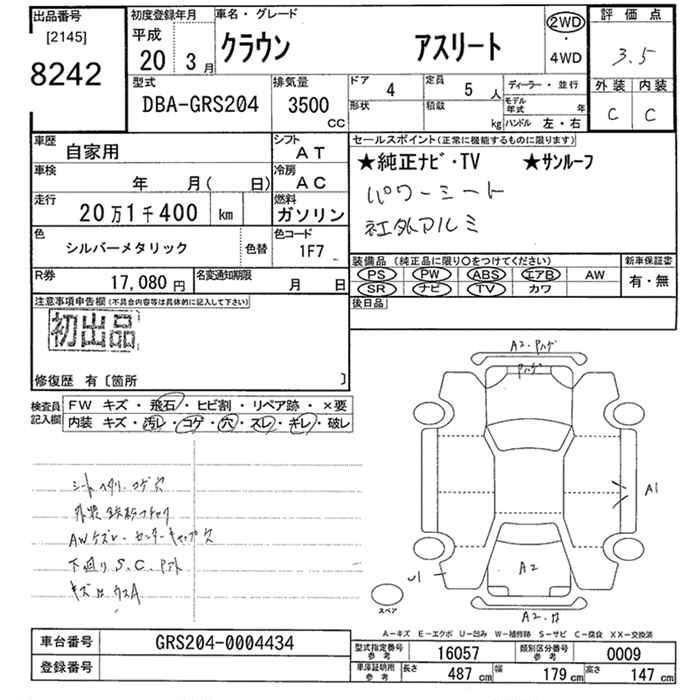 出品番号
[2145]
8242
初度登録年月
平成
20 3月
車名・グレード
クラウン アスリート
2WD
・
4WD
評価点
3.5
外装 内装
C C
型式
DBA-GRS204
排気量
3500
CC
ドア 4
定員 5 人
形状
積載 kg
ディーラー・並行
モデル年式 年
ハンドル 左・右
車歴
自家用
シフト
AT
車検
年 月( 日)
冷房
AC
走行
20万1千400 km
燃料
ガソリン
色
シルバーメタリック
色替
色コード
1F7
R券
17,080 円
名変通知期限
月 日
セールスポイント(正常に機能するものに限ります)
★純正ナビ・TV ★サンルーフ
パワーシート
社外アルミ
装備品(純正品に限り〇をつけてください)
PS PW ABS エアB AW
SR ナビ TV カワ
新車保証書
有・無
後日品
注意事項申告欄(不具合内容等は具体的に記入して下さい)
初出品
修復歴 有〔箇所 〕
検査員
記入欄
FW キズ・飛石・ヒビ割・リペア跡・×要
内装 キズ・汚レ・コゲ・穴・スレ・キレ・破レ
シートヘタリ.コゲ穴
外装鉄粉
AWケズレ.センターキャップ欠
下廻りS.C.
キズ
A2.ハゲ
ハゲ
A1
A2
U1
A2.
スペア
A－キズ E－エクボ U－凹み W－補修跡 S－サビ C－腐食 XX－交換済
車台番号
GRS204-0004434
登録番号
型式指定番号
参考
16057
類別区分番号
参考
0009
車庫証明用
参考
長さ 487 cm
幅 179 cm
高さ 147 cm